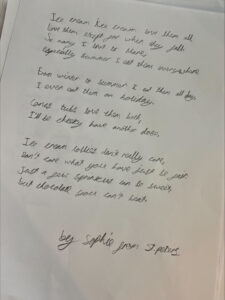 Ice cream Ice cream love them all,
love them except for when they fall.
So many I love to share,
especially summer I eat them everywhere.
From winter to summer I eat them all day,
I even eat them on holiday.
Cones tubs love them both,
I'll be cheeky have another
Ice cream lollies don't really care,
don't care what you have just be
Just a sprinkles can be sweet,
but chocolate sauce can't beat.
by Sophie from